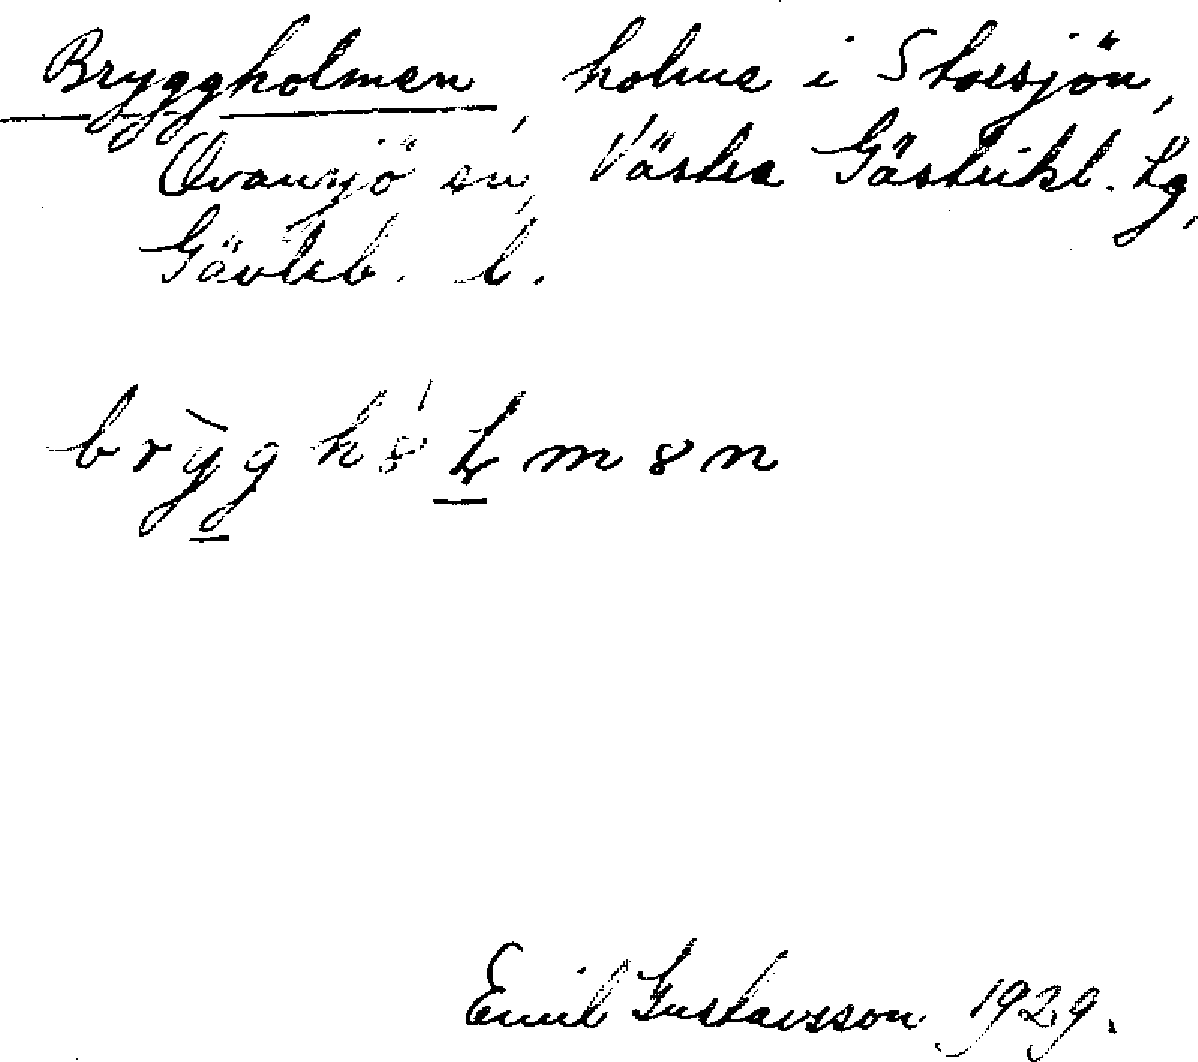 Bryggholmen, holme i Storsjön,
Ovansjö sn, Västra Gästrikl. tg,
Gävleb. l.
brỳg hó̵ł m ɵn
Emil Gustavsson 1929.